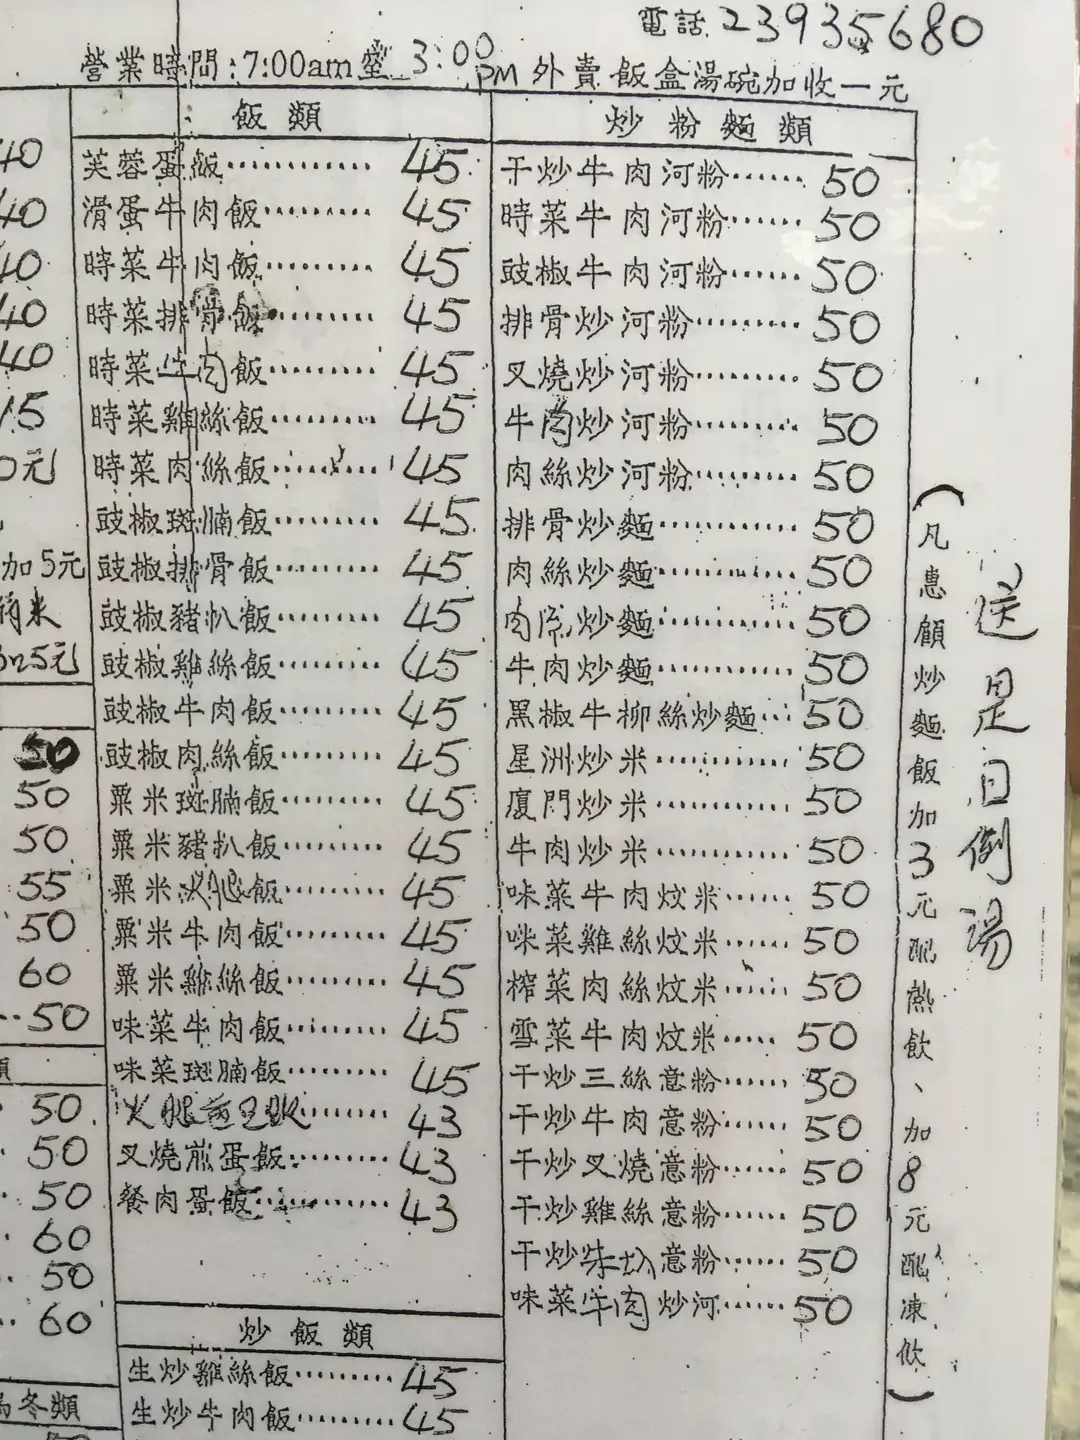 電話 23935680
營業時間:7:00am至 3:00PM 外賣飯盒湯碗加收一元
40
40
40
40
40
15
0元
加5元
5元
50
50
50
55
50
60
50
類
50
50
50
60
50
60
冬類
飯類
芙蓉蛋飯............45
滑蛋牛肉飯.........45
時菜牛肉飯.........45
時菜排骨飯.........45
時菜牛肉飯.........45
時菜雞絲飯.........45
時菜肉絲飯.........45
豉椒斑腩飯.........45
豉椒排骨飯.........45
豉椒豬扒飯.........45
豉椒雞絲飯.........45
豉椒牛肉飯.........45
豉椒肉絲飯.........45
粟米斑腩飯.........45
粟米豬扒飯.........45
粟米火腿飯.........45
粟米牛肉飯.........45
粟米雞絲飯.........45
味菜牛肉飯.........45
味菜斑腩飯.........45
火腿煎旦飯.........43
叉燒煎蛋飯.........43
餐肉蛋飯............43
炒飯類
生炒雞絲飯.........45
生炒牛肉飯.........45
炒粉麵類
干炒牛肉河粉......50
時菜牛肉河粉......50
豉椒牛肉河粉......50
排骨炒河粉.........50
叉燒炒河粉.........50
牛肉炒河粉.........50
肉絲炒河粉.........50
排骨炒麵............50
肉絲炒麵............50
炒麵............50
牛肉炒麵............50
黑椒牛柳絲炒麵...50
星洲炒米............50
廈門炒米............50
牛肉炒米............50
味菜牛肉炆米......50
味菜雞絲炆米......50
榨菜肉絲炆米......50
雪菜牛肉炆米.....50
干炒三絲意粉......50
干炒牛肉意粉......50
干炒叉燒意粉......50
干炒雞絲意粉......50
干炒意粉......50
味菜牛肉炒河......50
(凡惠顧炒麵飯加3元配熱飲、加8元配凍飲)
送是日例湯